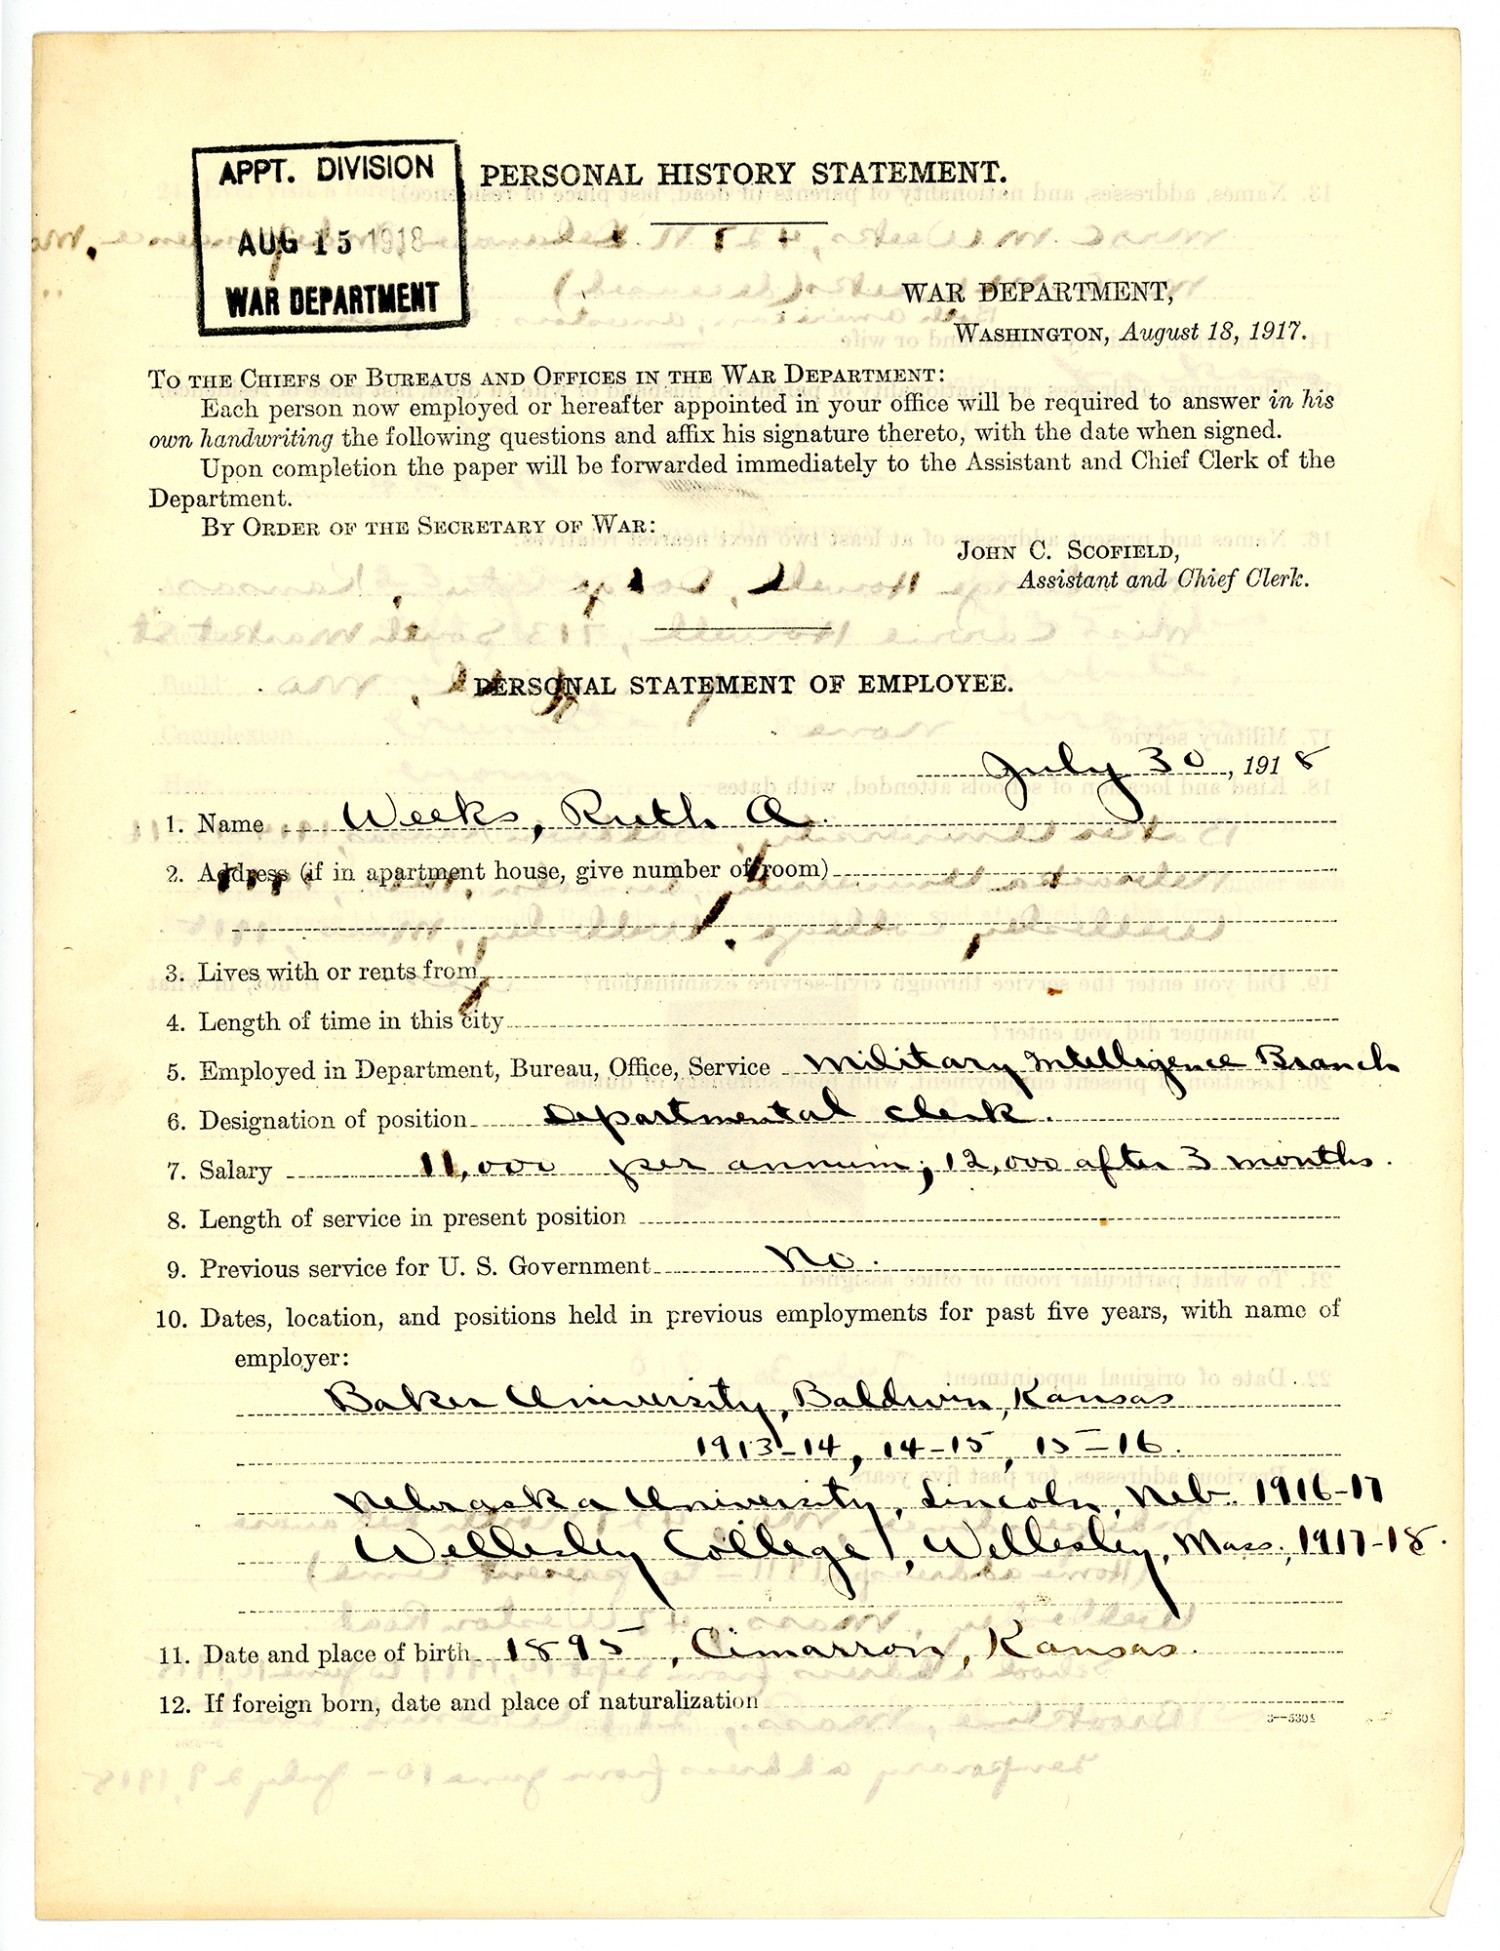 APPT. DIVISION
AUG 15 1918
WAR DEPARTMENT
PERSONAL HISTORY STATEMENT.
WAR DEPARTMENT,
WASHINGTON, August 18, 1917.
TO THE CHIEFS OF BUREAUS AND OFFICES IN THE WAR DEPARTMENT:
Each person now employed or hereafter appointed in your office will be required to answer in his
own handwriting the following questions and affix his signature thereto, with the date when signed.
Upon completion the paper will be forwarded immediately to the Assistant and Chief Clerk of the
Department.
BY ORDER OF THE SECRETARY OF WAR:
JOHN C. SCOFIELD,
Assistant and Chief Clerk.
PERSONAL STATEMENT OF EMPLOYEE.
July 30, 1918
1. Name Weeks, Ruth A.
2. Address (if in apartment house, give number of room)
3. Lives with or rents from
4. Length of time in this city
5. Employed in Department, Bureau, Office, Service Military Intelligence Branch
6. Designation of position Departmental clerk.
7. Salary 11,000 per annum; 12,000 after 3 months.
8. Length of service in present position
9. Previous service for U. S. Government No.
10. Dates, location, and positions held in previous employments for past five years, with name of
employer:
Baker University, Baldwin, Kansas
1913-14, 14-15, 15-16.
Nebraska University, Lincoln, Neb. 1916-17
Wellesley College, Wellesley, Mass., 1917-18.
11. Date and place of birth 1895, Cimarron, Kansas.
12. If foreign born, date and place of naturalization
3—5304